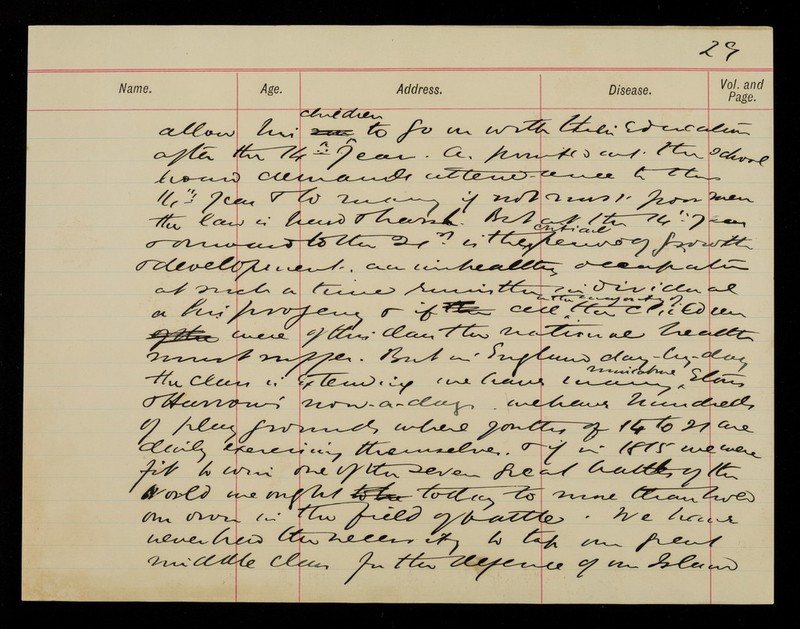 29
Name. Age. Address. Disease. Vol. and Page.
children
allow his to go on with their Education
after the 14th year. A. points out the School
board demands attendance to the
14th year & to many if not most poor men
the law is hard & harsh. But at the 14th year
critical
& onward to the 21st is the period of growth
& development. an unhealthy occupation
at such a time ruins the individual
or the majority of
or his progeny & if the all the children
of the were of this class the national health
must suffer. But in England day-by-day
the class is extending we have many
miniature Etons
& Harrows now-a-days. we have hundreds
of play grounds where youths of 14 to 21 are
daily exercising themselves. & if in 1815 we were
fit to win one of the seven great battles of the
World we ought to be today to more than hold
our own in the field of battle. We have
never had the necessity to tap our great
middle class for the defence of our Island